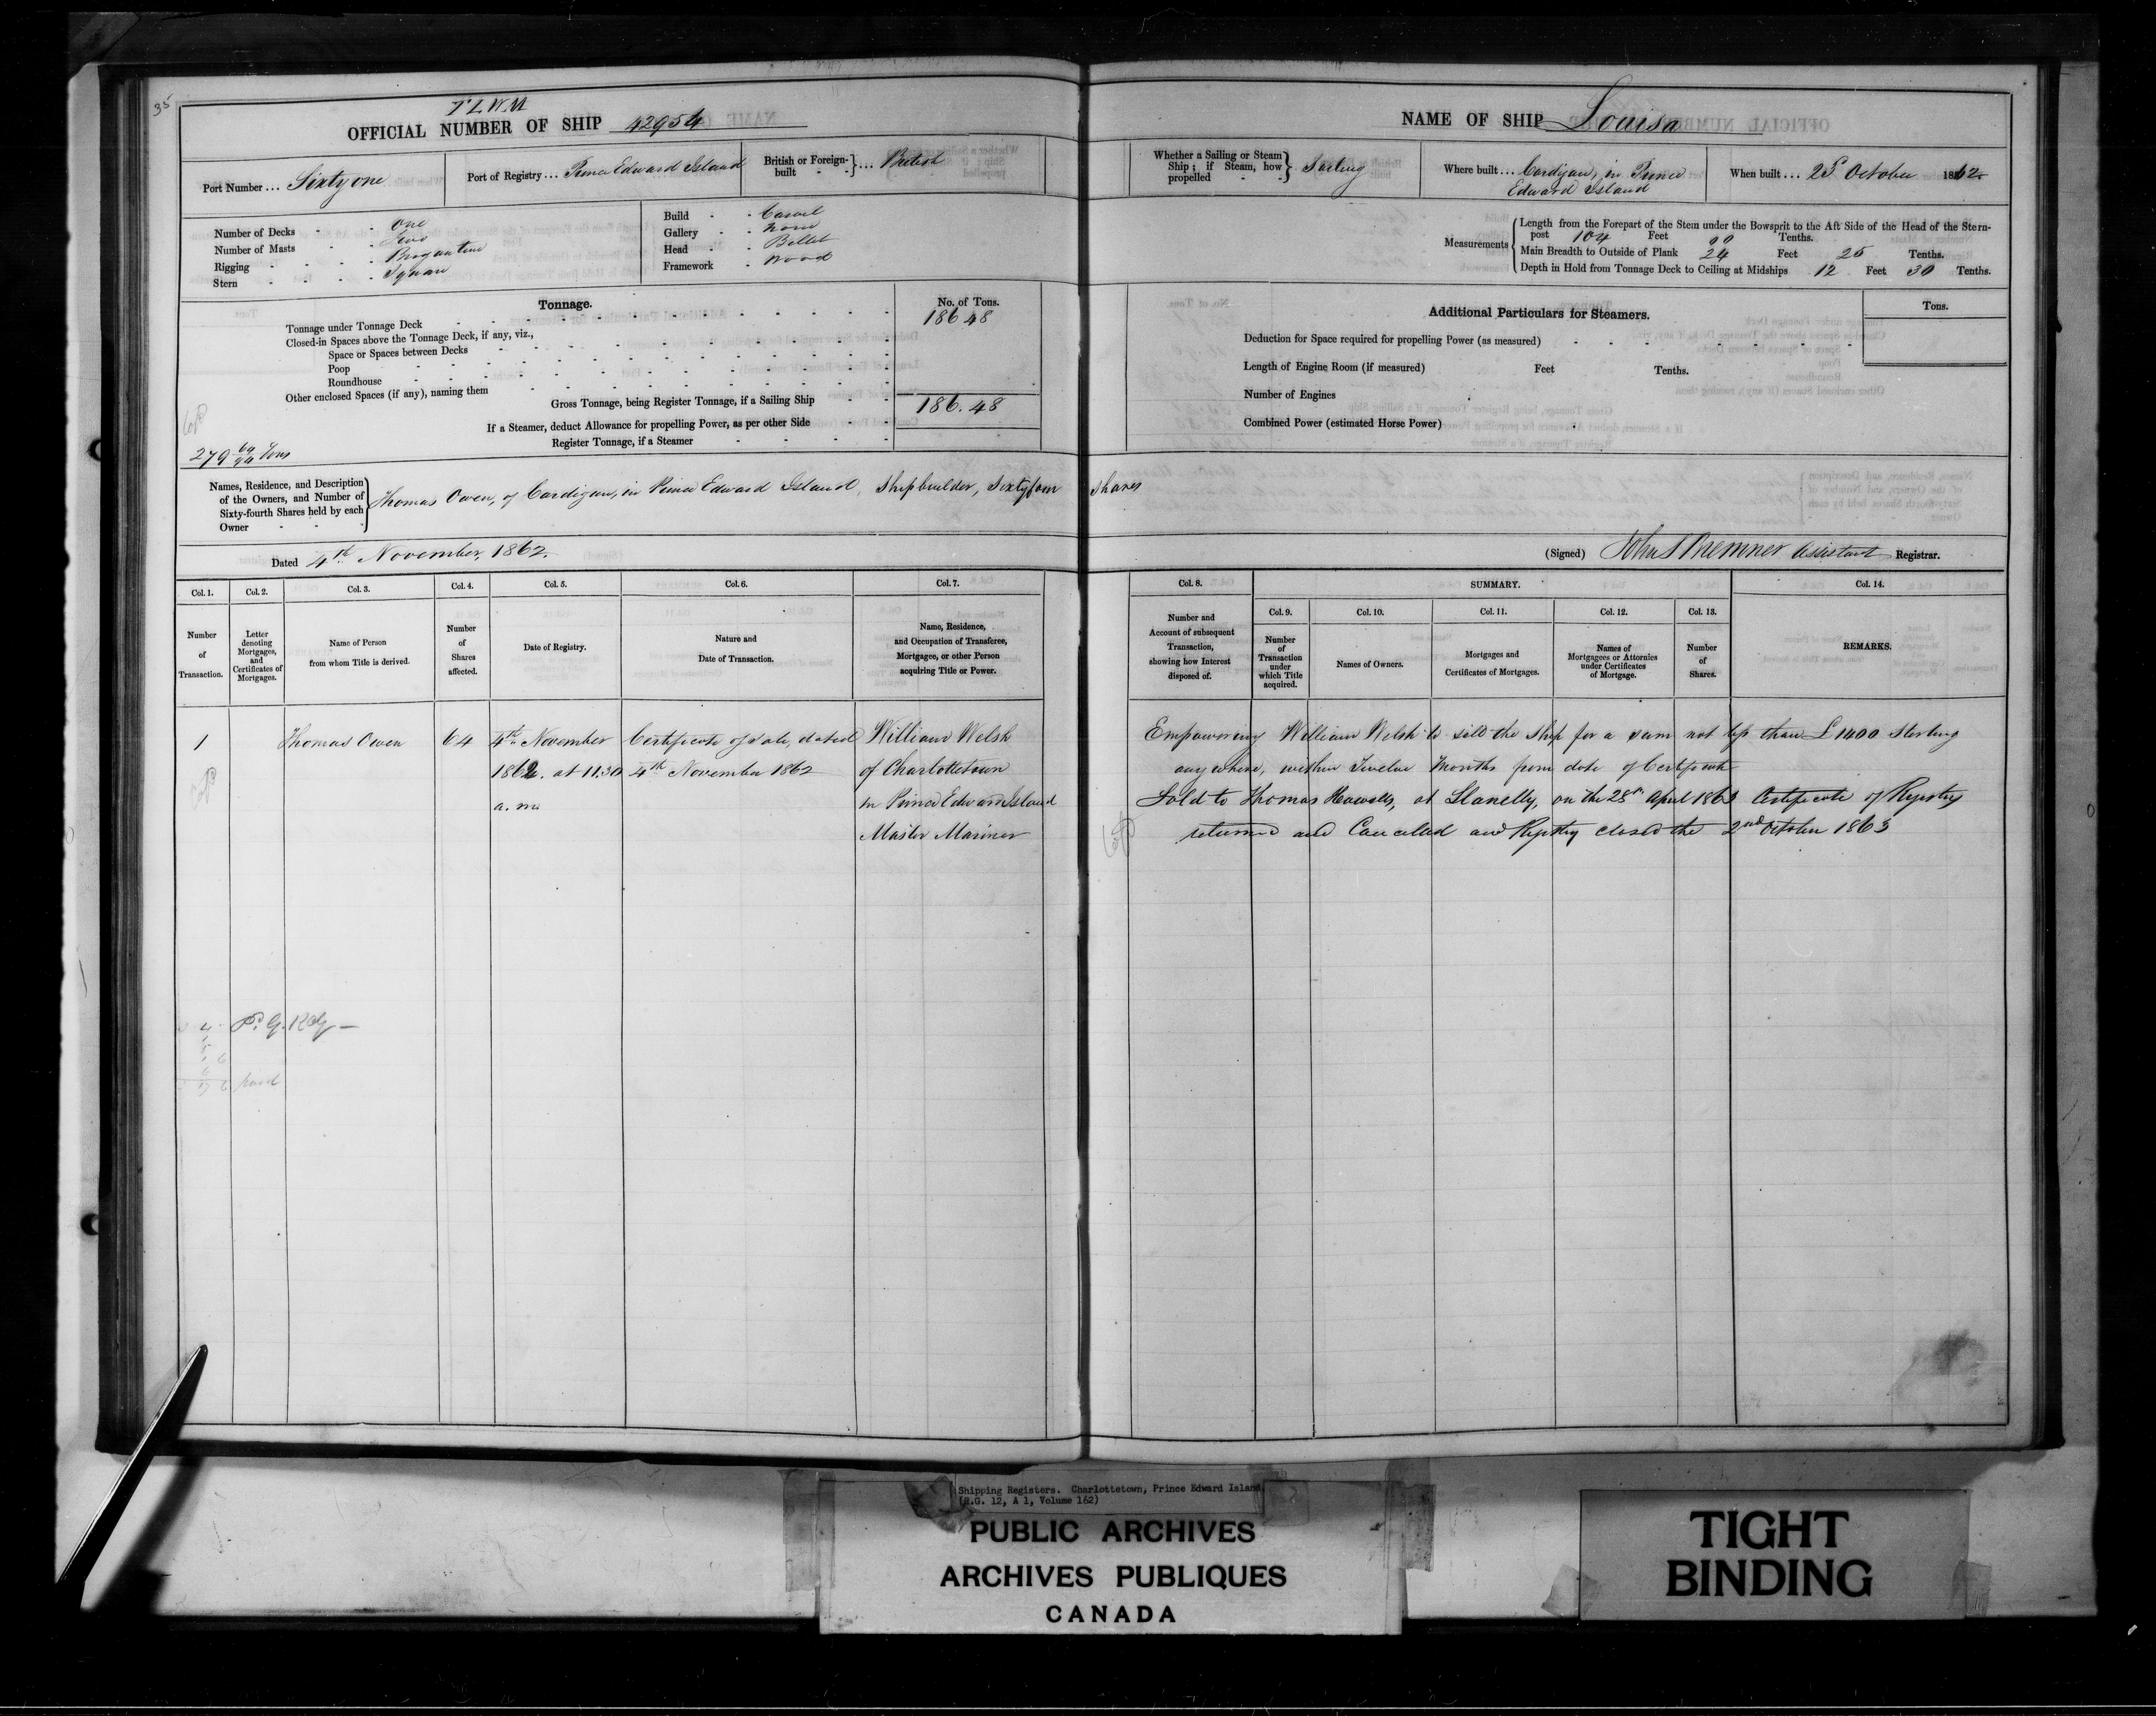 35
TLWM
OFFICIAL NUMBER OF SHIP 42954
Port Number ... Sixty one
Port of Registry ... Prince Edward Island
British or Foreign-built } ... British
Number of Decks - - One
Number of Masts - - Two
Rigging - - - - Brigantine
Stern - - - - Square
Build - - Carvel
Gallery - - None
Head - - Billet
Framework - Wood
Tonnage.
No. of Tons.
Tonnage under Tonnage Deck 186 48
Closed-in Spaces above the Tonnage Deck, if any, viz.,
Space or Spaces between Decks
Poop
Roundhouse
Other enclosed Spaces (if any), naming them
Gross Tonnage, being Register Tonnage, if a Sailing Ship 186.48
If a Steamer, deduct Allowance for propelling Power, as per other Side
Register Tonnage, if a Steamer
279 69/94 Tons
Names, Residence, and Description of the Owners, and Number of Sixty-fourth Shares held by each Owner } Thomas Owen, of Cardigan, in Prince Edward Island, Shipbuilder, Sixtyfour Shares
Dated 4th November, 1862.
Col. 1. Col. 2. Col. 3. Col. 4. Col. 5. Col. 6. Col. 7.
Number of Transaction.
Letter denoting Mortgages, and Certificates of Mortgages.
Name of Person from whom Title is derived.
Number of Shares affected.
Date of Registry.
Nature and Date of Transaction.
Name, Residence, and Occupation of Transferee, Mortgagee, or other Person acquiring Title or Power.
1 Thomas Owen 64 4th November Certificate of Sale, dated William Welsh
1862. at 11.30 4th November 1862 of Charlottetown
a.m. in Prince Edward Island
Master Mariner
NAME OF SHIP Louisa
Whether a Sailing or Steam Ship; if Steam, how propelled } Sailing
Where built ... Cardigan, in Prince
Edward Island
When built ... 25 October 1862
Measurements { Length from the Forepart of the Stem under the Bowsprit to the Aft Side of the Head of the Stern-
post 104 Feet 00 Tenths.
Main Breadth to Outside of Plank 24 Feet 25 Tenths.
Depth in Hold from Tonnage Deck to Ceiling at Midships 12 Feet 30 Tenths.
Additional Particulars for Steamers.
Tons.
Deduction for Space required for propelling Power (as measured)
Length of Engine Room (if measured) Feet Tenths.
Number of Engines
Combined Power (estimated Horse Power)
(Signed) John S Bremner Assistant Registrar.
Col. 8. SUMMARY. Col. 14.
Col. 9. Col. 10. Col. 11. Col. 12. Col. 13.
Number and Account of subsequent Transaction, showing how Interest disposed of.
Number of Transaction under which Title acquired.
Names of Owners.
Mortgages and Certificates of Mortgages.
Names of Mortgagees or Attornies under Certificates of Mortgage.
Number of Shares.
REMARKS.
Empowering William Welsh to sell the Ship for a sum not less than £1400 Sterling
any where, within Twelve Months from date of Certificate
Sold to Thomas Howells, at Llanelly, on the 28th April 1863 Certificate of Registry
returned and Cancelled and Registry closed the 2nd October 1863
Shipping Registers. Charlottetown, Prince Edward Island
(R.G. 12, A 1, Volume 162)
PUBLIC ARCHIVES
ARCHIVES PUBLIQUES
CANADA
TIGHT
BINDING